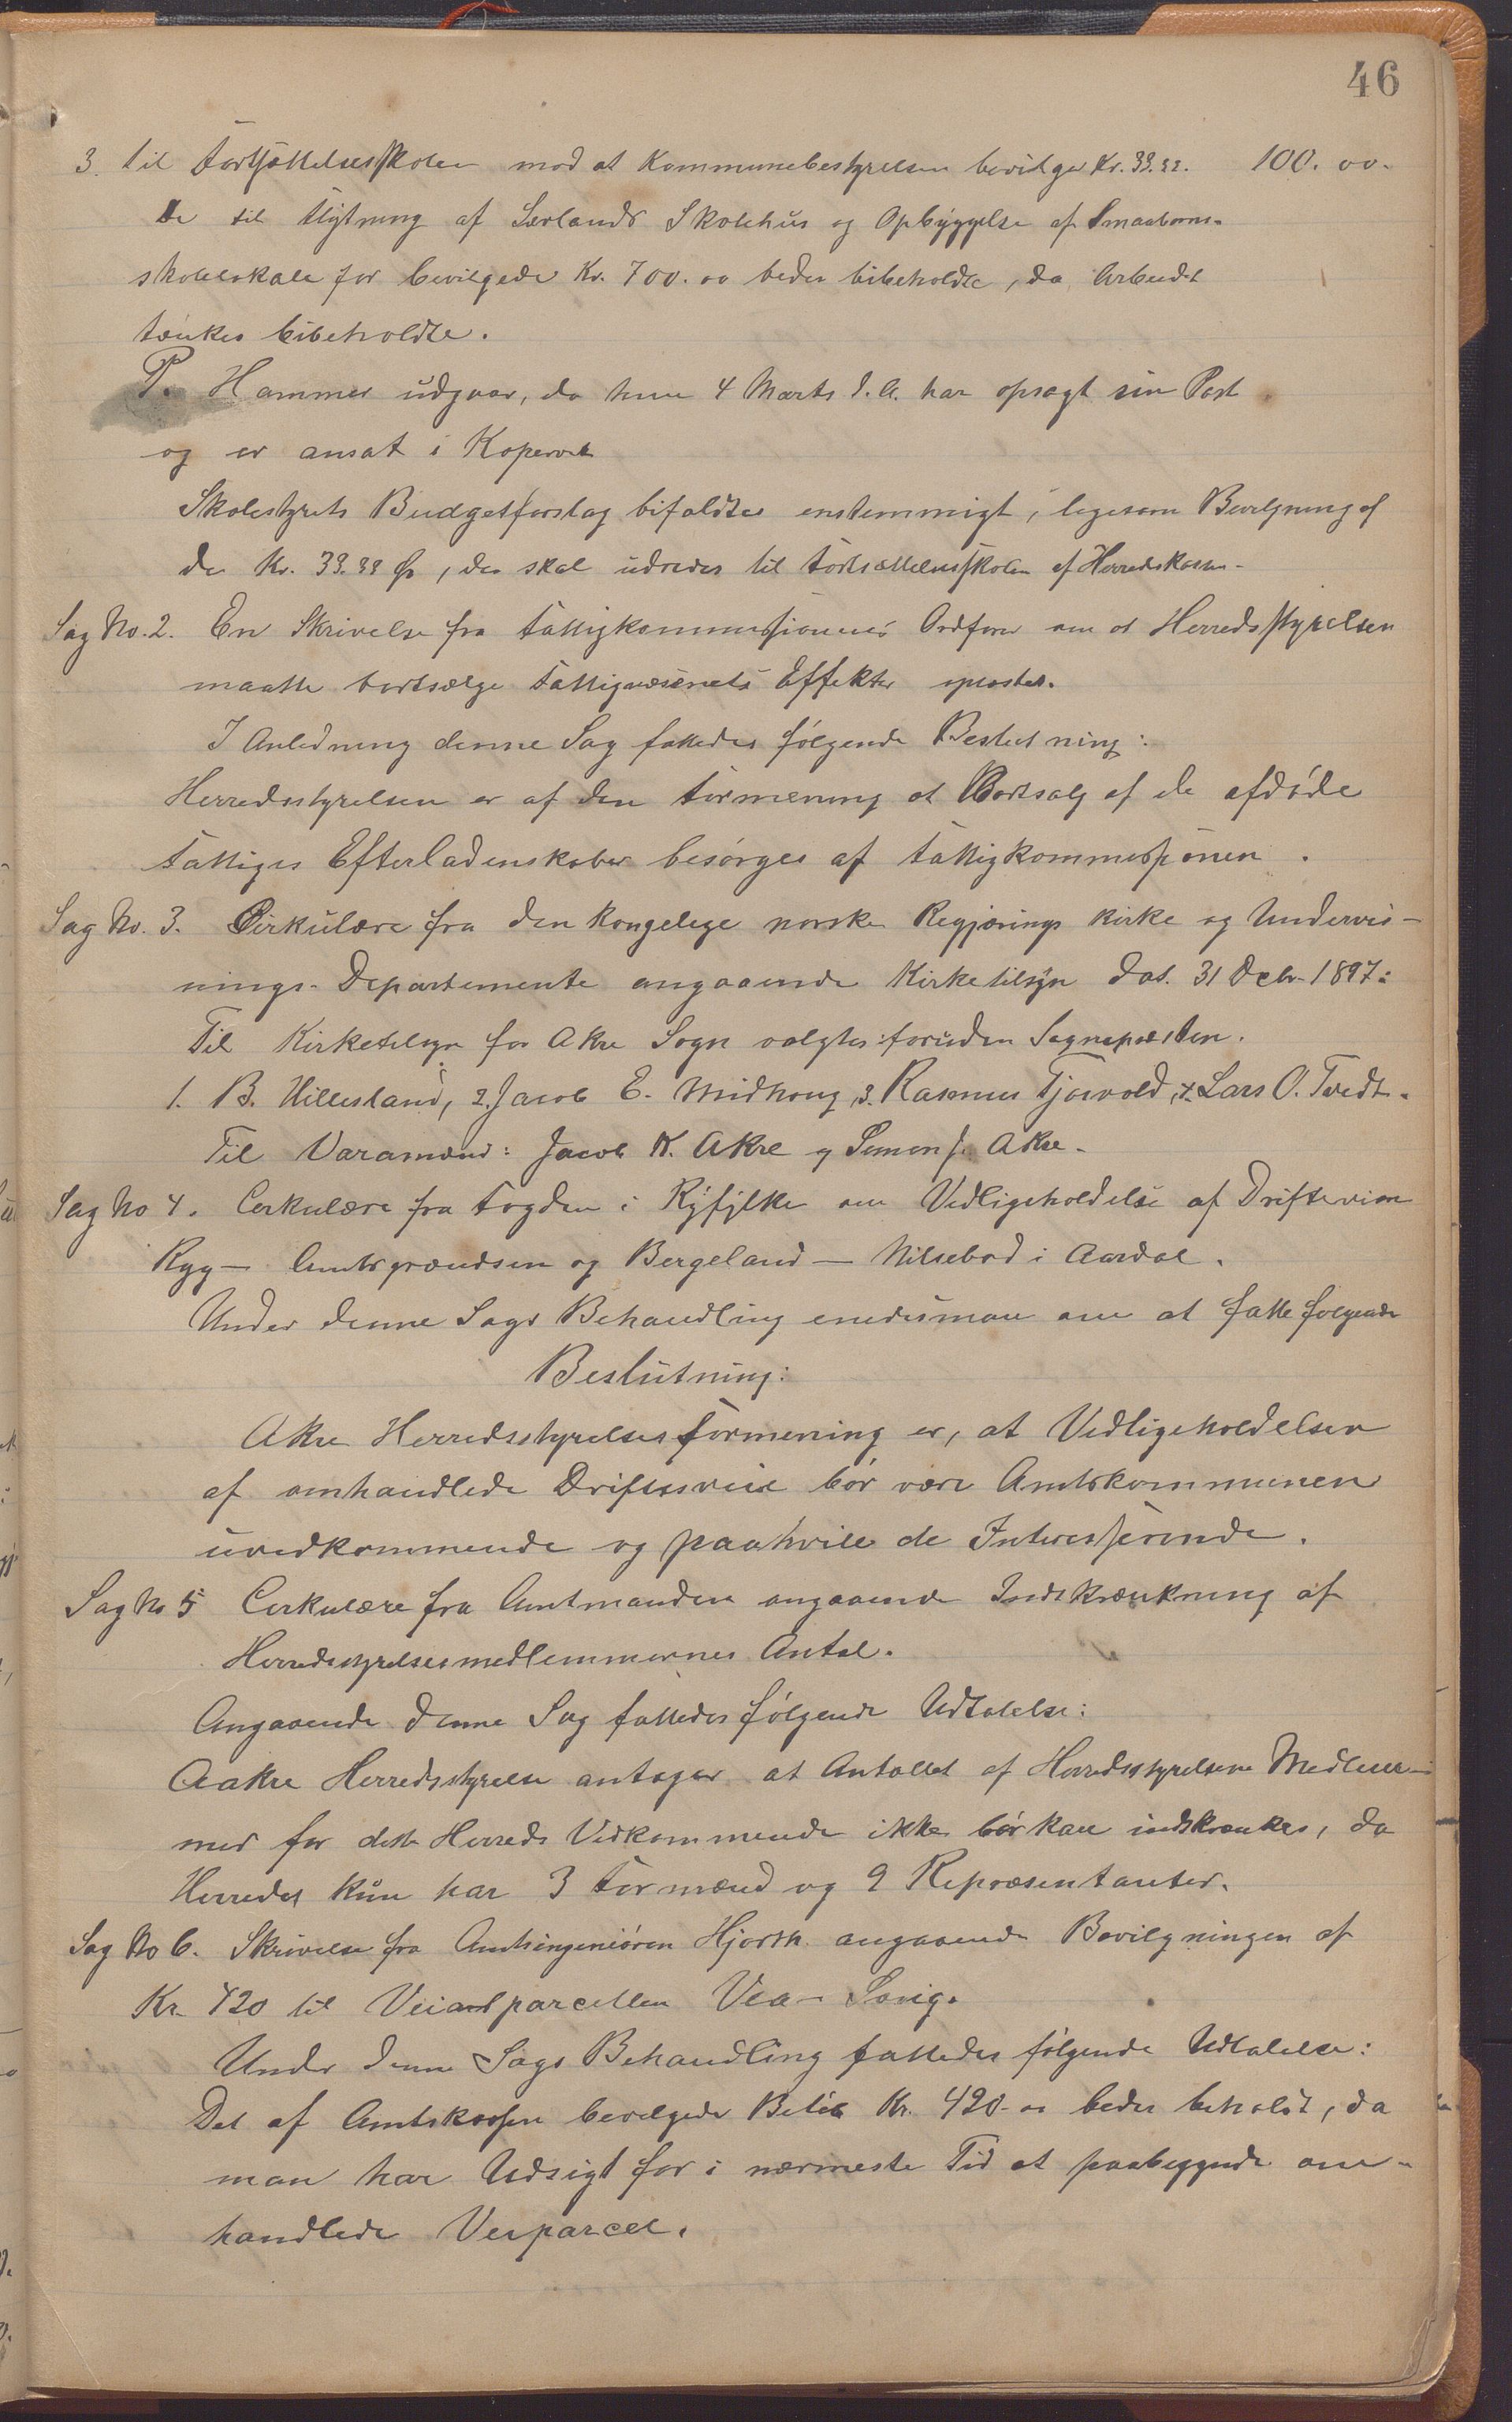 46
3. til Fortsættelsesskolen mod at Kommunebestyrelsen bevilger Kr. 33.33. 100.00.
De til Flytning af Sœrlands Skolehus og Opbyggelse af Smaabørns-
skolelokale før bevilgede Kr. 700.00 bedes bibeholdte, da Arbeidet
tænkes bibeholdte.
P. Hammer udgaar, da hun 4 Marts d.A. har opsagt sin Post
og er ansat i Kopervik
Skolestyrets Budgetforslag bifaldtes enstemmigt, ligesom Bevilgning af
de Kr. 33.33 Ør, der skal udredes til Fortsættelsesskolen af Herredskassen-
Sag No. 2. En Skrivelse fra Fattigkommissionens Ordfører om at Herredsstyrelsen
maatte bortsælge Fattigvæsenets Effekter oplæstes.
I Anledning denne Sag fattedes følgende Beslutning:
Herredsstyrelsen er af den Formening at Bortsalg af de afdøde
Fattiges Efterladenskaber besørges af Fattigkommissionen.
Sag No. 3. Cirkulære fra den kongelige norske Regjerings Kirke og Undervis-
nings-Departemente angaaende Kirketilsyn dat. 31 Debr. 1897:
Til Kirketilsyn for Akre Sogn valgtes foruden Sognepræsten.
1. B. Hillesland, 2. Jacob E. Midhoug, 3. Rasmus Tjosvold, 4. Lars O. Tvedt.
Til Varamænd: Jacob K. Akre og Simon J. Akre.
Sag No 4. Cerkulære fra Fogden i Ryfylke om Vedligeholdelse af Drifteveien
Ryg - Amtsgrændsen og Bergeland - Nilsebod i Aardal.
Under denne Sags Behandling enedes man om at fatte følgende
Beslutning:
Akre Herredsstyrelses Formening er, at Vedligeholdelsen
af omhandlede Driftesveie bør være Amtskommunen
uvedkommende og paahvile de Interesserende.
Sag No 5 Cerkulære fra Amtmanden angaaende Indskrænkning af
Herredsstyrelsesmedlemmernes Antal.
Angaaende denne Sag fattedes følgende Udtalelse:
Aakre Herredsstyrelse antager at Antallet af Herredsstyrelsens Medlem-
mer for dette Herreds Vedkommende ikke bør kan indskrænkes, da
Herredet kun har 3 Formænd og 9 Repræsentanter.
Sag No 6. Skrivelse fra Amtsingeniøren Hjorth angaaende Bevilgningen af
Kr. 420 til Veiparcellen Vea - Sævig.
Under denne Sags Behandling fattedes følgende Udtalelse:
Det af Amtskassen bevilgede Beløb Kr. 420.00 bedes beholdt, da
man har Udsigt for i nærmeste Tid at paabegynde om-
handlede Veiparcel.